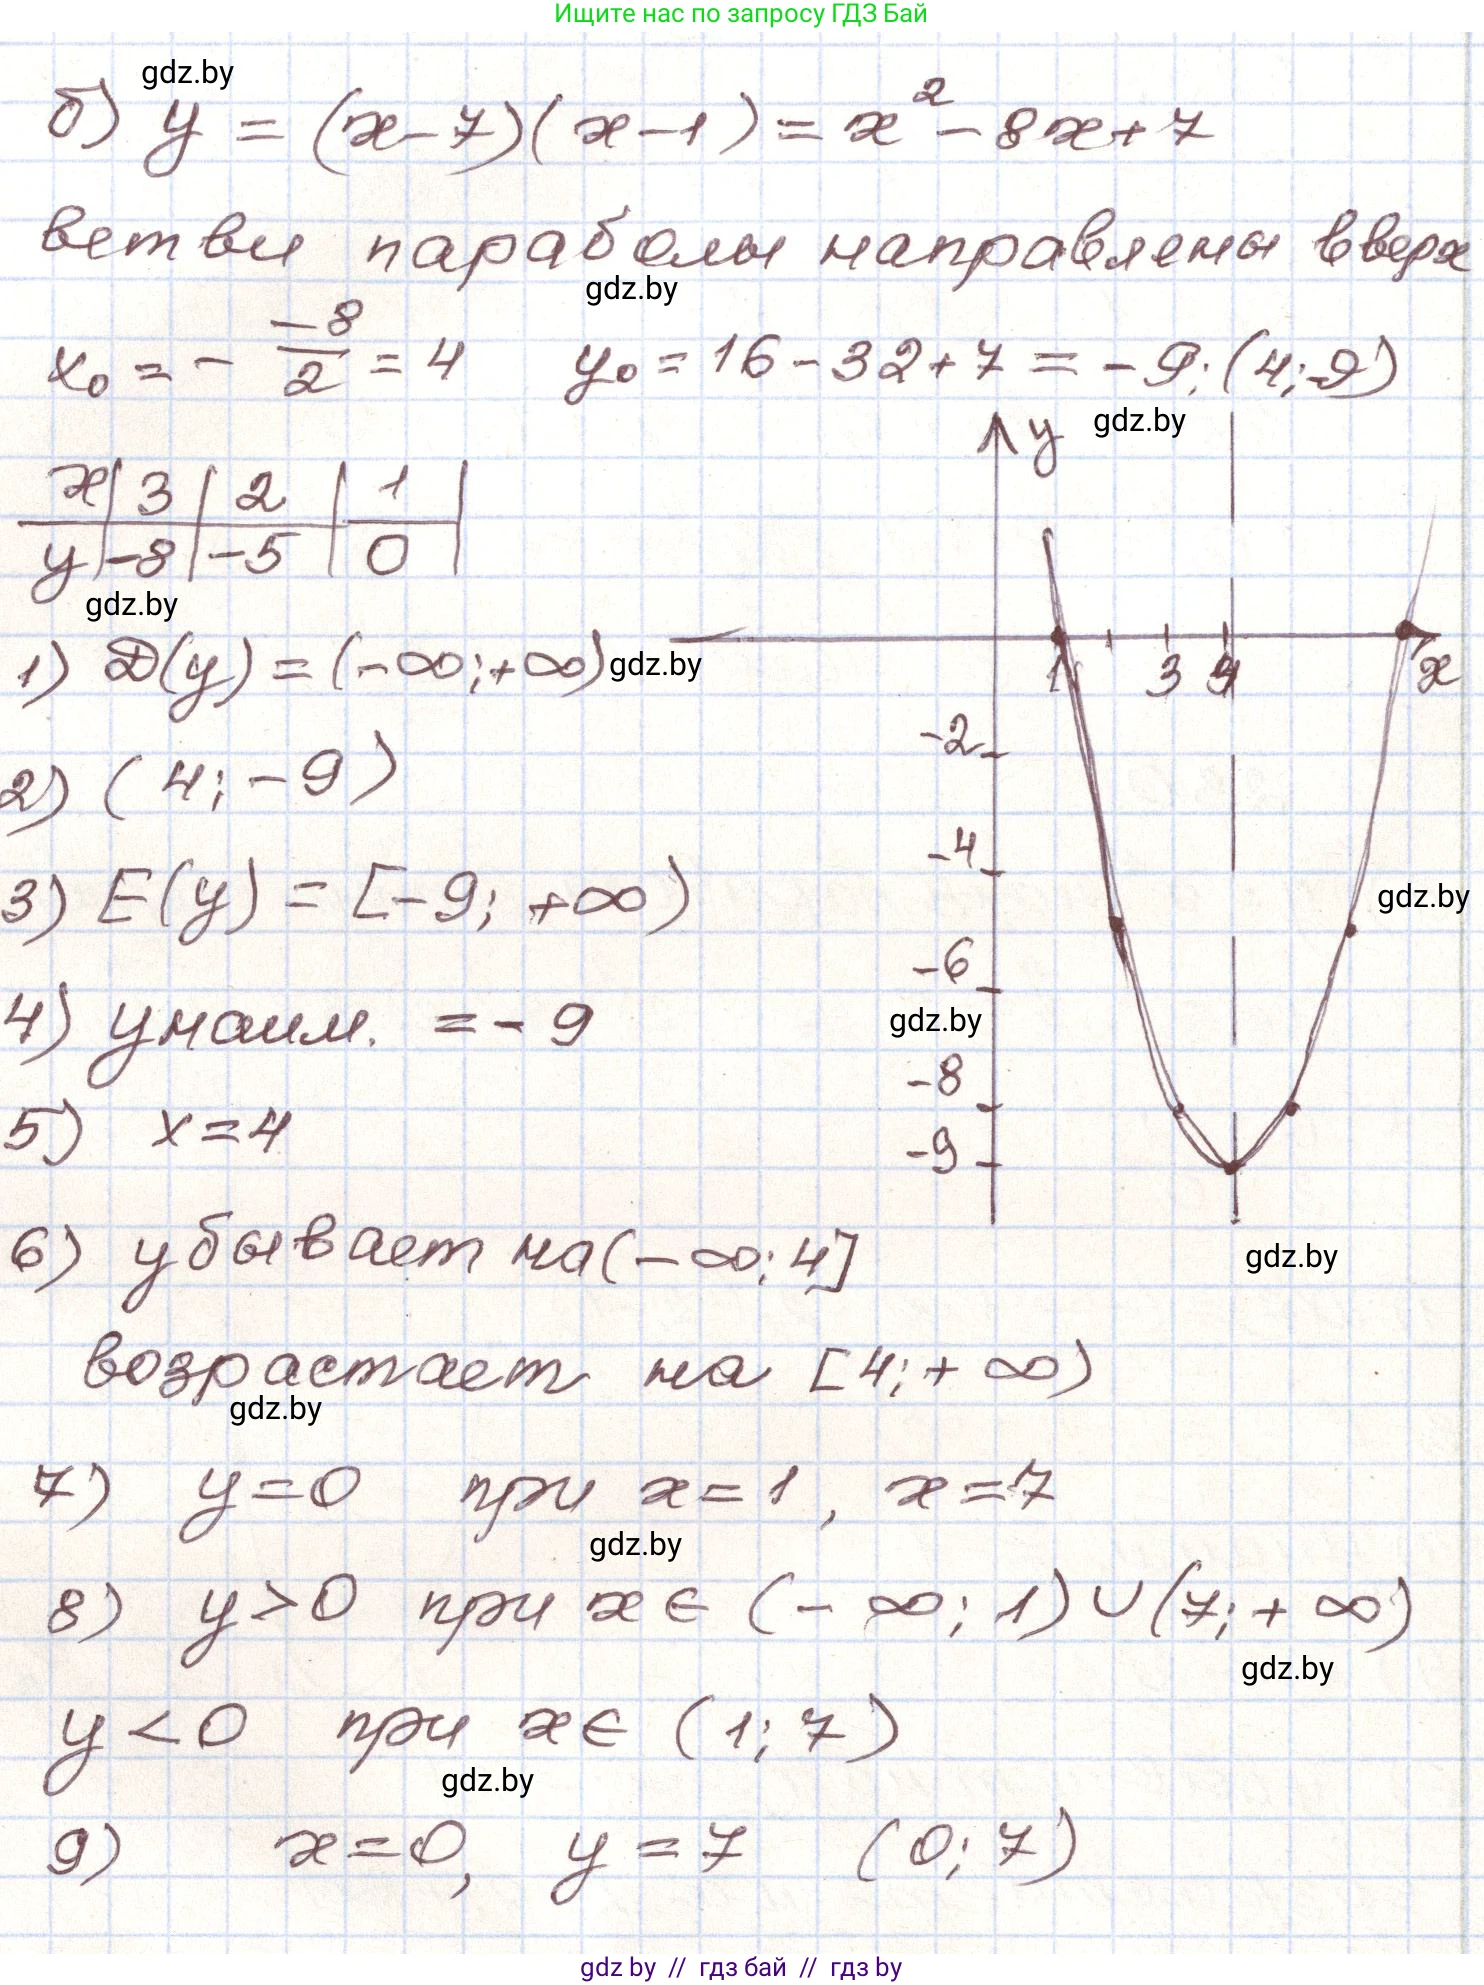 Ищите нас по запросу ГДЗ Бай
gdz.by
б) y = (x-7)(x-1) = x² - 8x + 7
ветви параболы направлены вверх
gdz.by
x₀ = - -8/2 = 4 y₀ = 16 - 32 + 7 = -9; (4; -9)
gdz.by
y
x | 3 | 2 | 1
y | -8 | -5 | 0
gdz.by
1) D(y) = (-∞; +∞)
gdz.by
1 3 4 x
-2
2) (4; -9)
-4
3) E(y) = [-9; +∞)
gdz.by
-6
4) yнаим. = -9
gdz.by
-8
5) x = 4
-9
6) убывает на (-∞; 4]
gdz.by
возрастает на [4; +∞)
gdz.by
7) y = 0 при x = 1, x = 7
gdz.by
8) y > 0 при x ∈ (-∞; 1) ∪ (7; +∞)
gdz.by
y < 0 при x ∈ (1; 7)
gdz.by
9) x = 0, y = 7 (0; 7)
gdz.by // гдз бай // гдз by